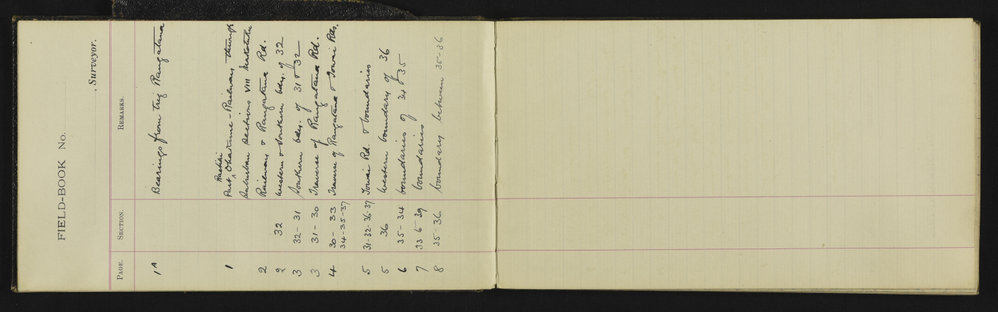 FIELD-BOOK No.
, Surveyor.
PAGE. SECTION. REMARKS.
1A Bearings from Trig Rangataua
Rochfort
1 Part, Ohakune - Railway through
Suburban Sections VIII
2 Railway & Rangataua Rd.
2 32 Western & Southern bdys. of 32
3 32 - 31 Southern bdy. of 31 & 32
3 31 - 30 Traverse of Rangataua Rd.
4 30 - 33 Traverse of Rangataua & Rds.
34-35-37
5 31-32-36-37 Rd. & boundaries
5 36 Western boundary of 36
6 35 - 34 boundaries of 34 & 35
7 boundaries
8 35 - 36 boundary between 35-36